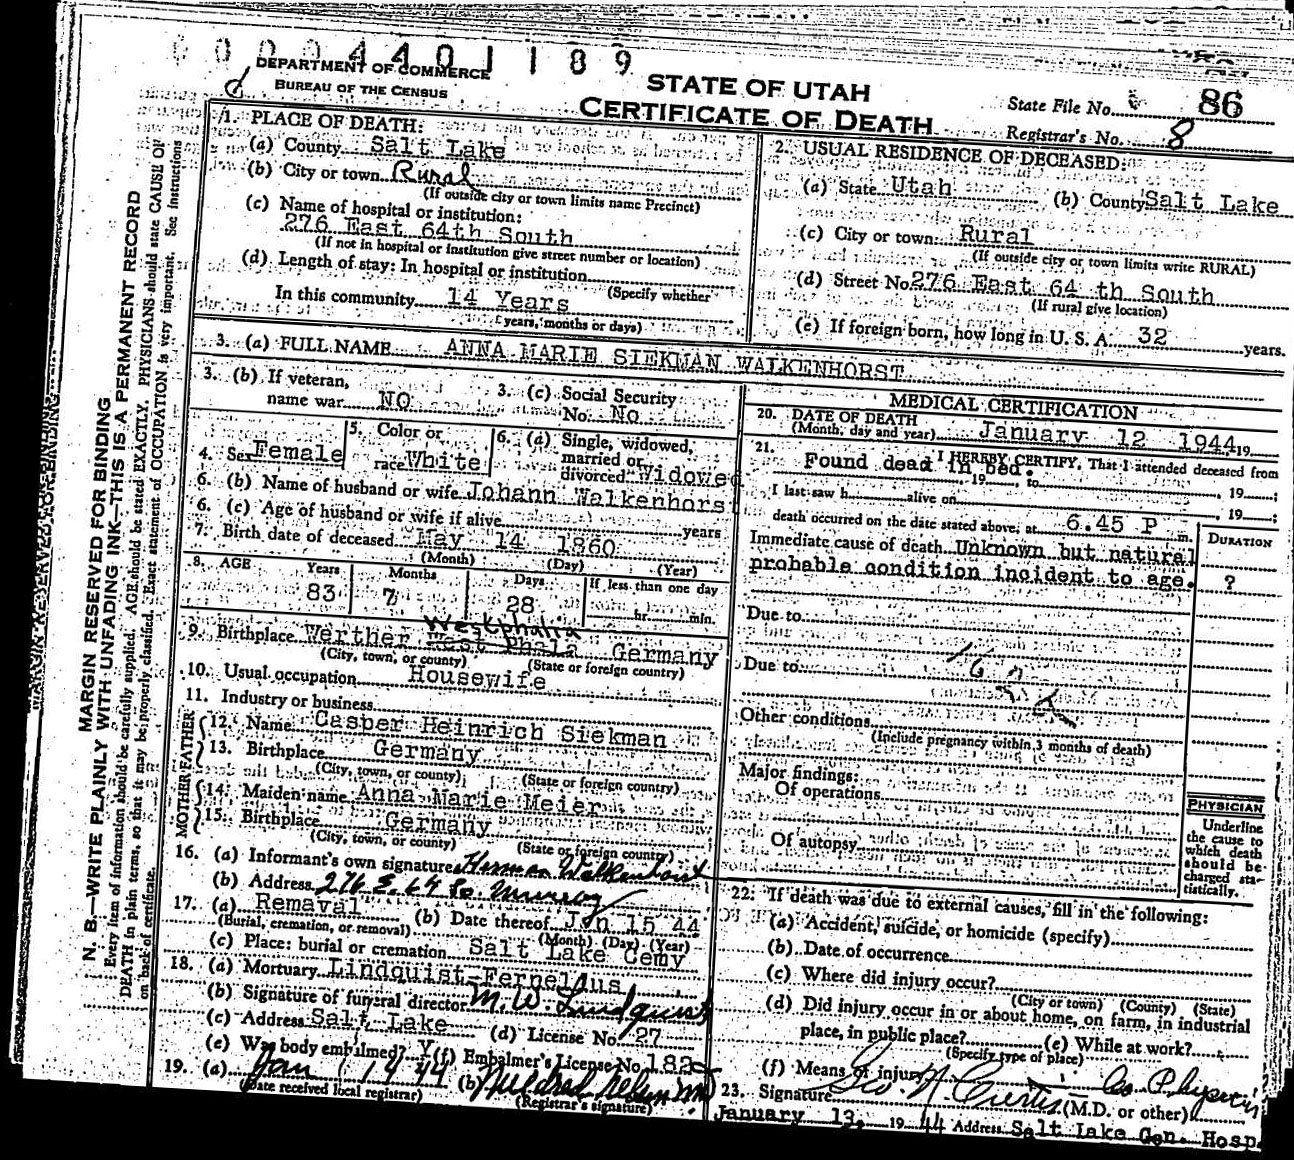 0004401189
DEPARTMENT OF COMMERCE
BUREAU OF THE CENSUS
STATE OF UTAH
CERTIFICATE OF DEATH
State File No. 86
Registrar's No. 8
MARGIN RESERVED FOR BINDING
N. B.—WRITE PLAINLY WITH UNFADING INK—THIS IS A PERMANENT RECORD
Every item of information should be carefully supplied. AGE should be stated EXACTLY. PHYSICIANS should state CAUSE OF
DEATH in plain terms, so that it may be properly classified. Exact statement of OCCUPATION is very important. See instructions
on back of certificate.
1. PLACE OF DEATH:
(a) County Salt Lake
(b) City or town Rural
(If outside city or town limits name Precinct)
(c) Name of hospital or institution:
276 East 64th South
(If not in hospital or institution give street number or location)
(d) Length of stay: In hospital or institution
(Specify whether
In this community 14 Years
years, months or days)
2. USUAL RESIDENCE OF DECEASED:
(a) State Utah (b) County Salt Lake
(c) City or town Rural
(If outside city or town limits write RURAL)
(d) Street No 276 East 64 th South
(If rural give location)
(e) If foreign born, how long in U. S. A. 32 years.
3. (a) FULL NAME ANNA MARIE SIEKMAN WALKENHORST
3. (b) If veteran, name war NO
3. (c) Social Security No. No
4. Sex Female
5. Color or race White
6. (a) Single, widowed, married or divorced Widowed
6. (b) Name of husband or wife Johann Walkenhorst
6. (c) Age of husband or wife if alive years
7. Birth date of deceased May 14 1860
(Month) (Day) (Year)
8. AGE Years Months Days If less than one day
83 7 28 hr. min.
Westphalia
9. Birthplace Werther West Phala Germany
(City, town, or county) (State or foreign country)
10. Usual occupation Housewife
11. Industry or business
FATHER
12. Name Casper Heinrich Siekman
13. Birthplace Germany
(City, town, or county) (State or foreign country)
MOTHER
14. Maiden name Anna Marie Meier
15. Birthplace Germany
(City, town, or county) (State or foreign country)
16. (a) Informant's own signature Herman Walkenhorst
(b) Address 276 E. 64 So. Murray
17. (a) Remaval (b) Date thereof Jan 15 44
(Burial, cremation, or removal) (Month) (Day) (Year)
(c) Place: burial or cremation Salt Lake Cemy
18. (a) Mortuary Lindquist-Fernelius
(b) Signature of funeral director M. W. Lindquist
(c) Address Salt Lake (d) License No. 27
(e) Was body embalmed? Y (f) Embalmer's License No. 182
19. (a) Jan 1944 (b)
(Date received local registrar) (Registrar's signature)
MEDICAL CERTIFICATION
20. DATE OF DEATH
(Month, day and year) January 12 1944 19
21. I HEREBY CERTIFY, That I attended deceased from
Found dead in bed.
, 19 , to , 19 ;
I last saw h alive on , 19 ;
death occurred on the date stated above, at 6.45 P m.
DURATION
Immediate cause of death Unknown but natural
probable condition incident to age. ?
Due to
Due to
Other conditions
(Include pregnancy within 3 months of death)
Major findings:
Of operations
Of autopsy
PHYSICIAN
Underline
the cause to
which death
should be
charged sta-
tistically.
22. If death was due to external causes, fill in the following:
(a) Accident, suicide, or homicide (specify)
(b) Date of occurrence
(c) Where did injury occur?
(City or town) (County) (State)
(d) Did injury occur in or about home, on farm, in industrial
place, in public place? (e) While at work?
(Specify type of place)
(f) Means of injury
23. Signature Geo. N. Curtis Co. Physician
(M.D. or other)
January 13, 19 44 Address Salt Lake Gen. Hosp.